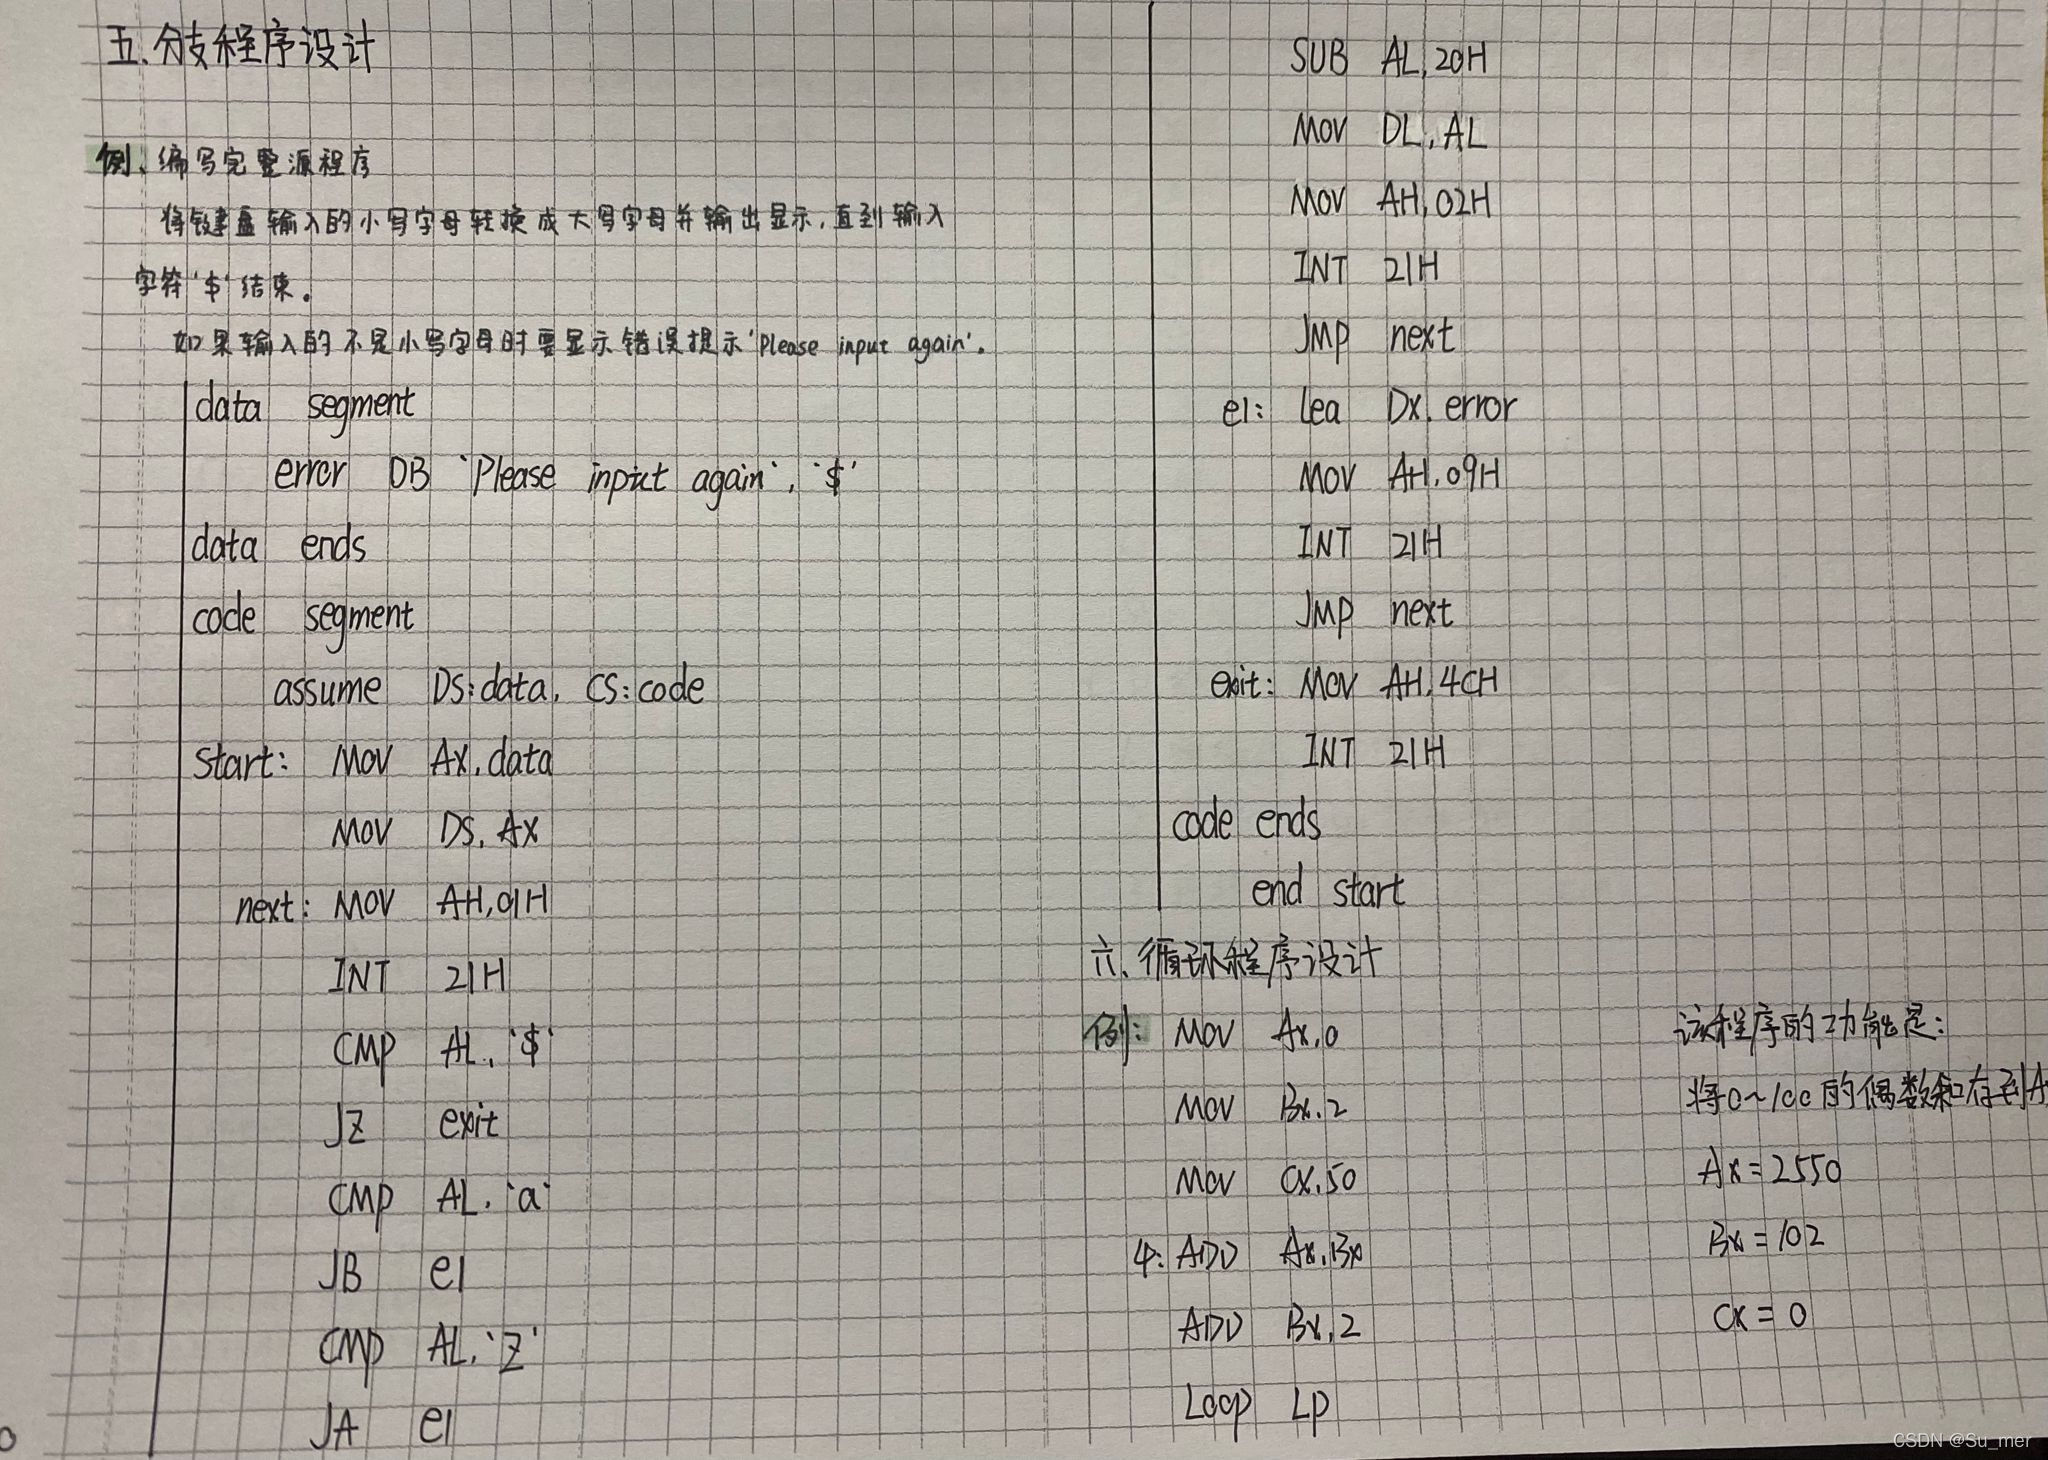 五.分支程序设计
例、编写完整源程序
将键盘输入的小写字母转换成大写字母并输出显示,直到输入
字符'$'结束。
如果输入的不是小写字母时要显示错误提示'please input again'.
data segment
error DB 'Please input again','$'
data ends
code segment
assume DS:data, CS:code
start: MOV AX,data
MOV DS,AX
next: MOV AH,01H
INT 21H
CMP AL,'$'
JZ exit
CMP AL,'a'
JB e1
CMP AL,'Z'
JA e1
SUB AL,20H
MOV DL,AL
MOV AH,02H
INT 21H
JMP next
e1: Lea Dx,error
MOV AH,09H
INT 21H
JMP next
exit: MOV AH,4CH
INT 21H
code ends
end start
六、循环程序设计
例: MOV Ax,0
MOV Bx,2
MOV CX,50
ADD Ax,Bx
ADD Bx,2
Loop LP
该程序的功能是:
将0~100的偶数和存到A
Ax=2550
Bx=102
CX=0
CSDN @Su_mer